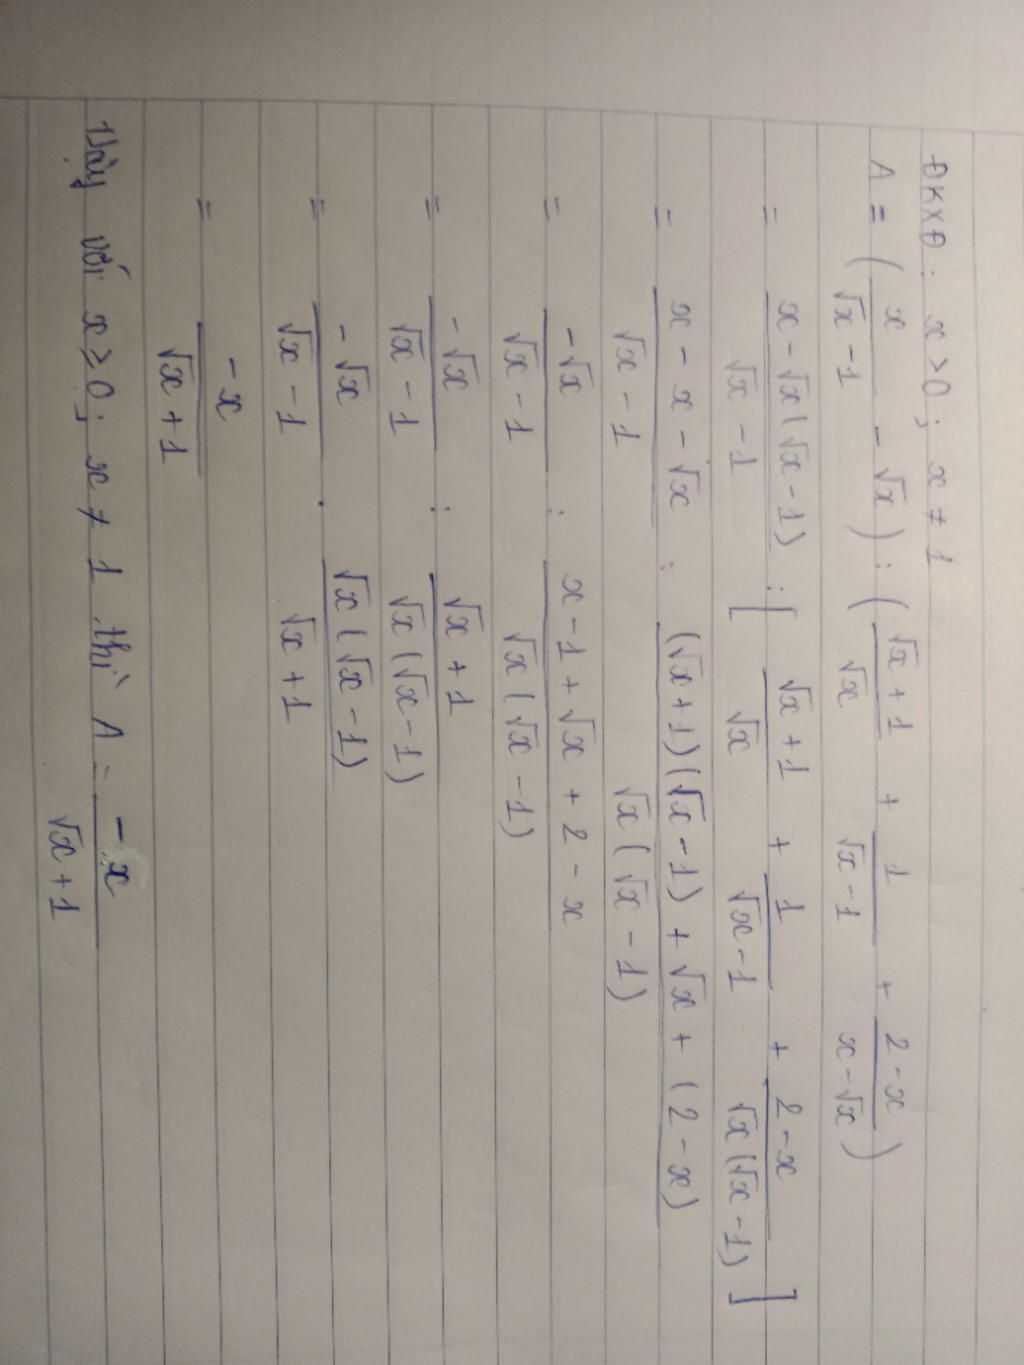 ĐKXĐ: x > 0; x ≠ 1
A = ( x/(√x - 1) - √x ) : ( (√x + 1)/√x + 1/(√x - 1) + (2 - x)/(x - √x) )
= (x - √x(√x - 1))/(√x - 1) : [ (√x + 1)/√x + 1/(√x - 1) + (2 - x)/(√x(√x - 1)) ]
= (x - x - √x)/(√x - 1) : ((√x + 1)(√x - 1) + √x + (2 - x))/(√x(√x - 1))
= (-√x)/(√x - 1) : (x - 1 + √x + 2 - x)/(√x(√x - 1))
= (-√x)/(√x - 1) : (√x + 1)/(√x(√x - 1))
= (-√x)/(√x - 1) . (√x(√x - 1))/(√x + 1)
= (-x)/(√x + 1)
Vậy với x ≥ 0; x ≠ 1 thì A = (-x)/(√x + 1)